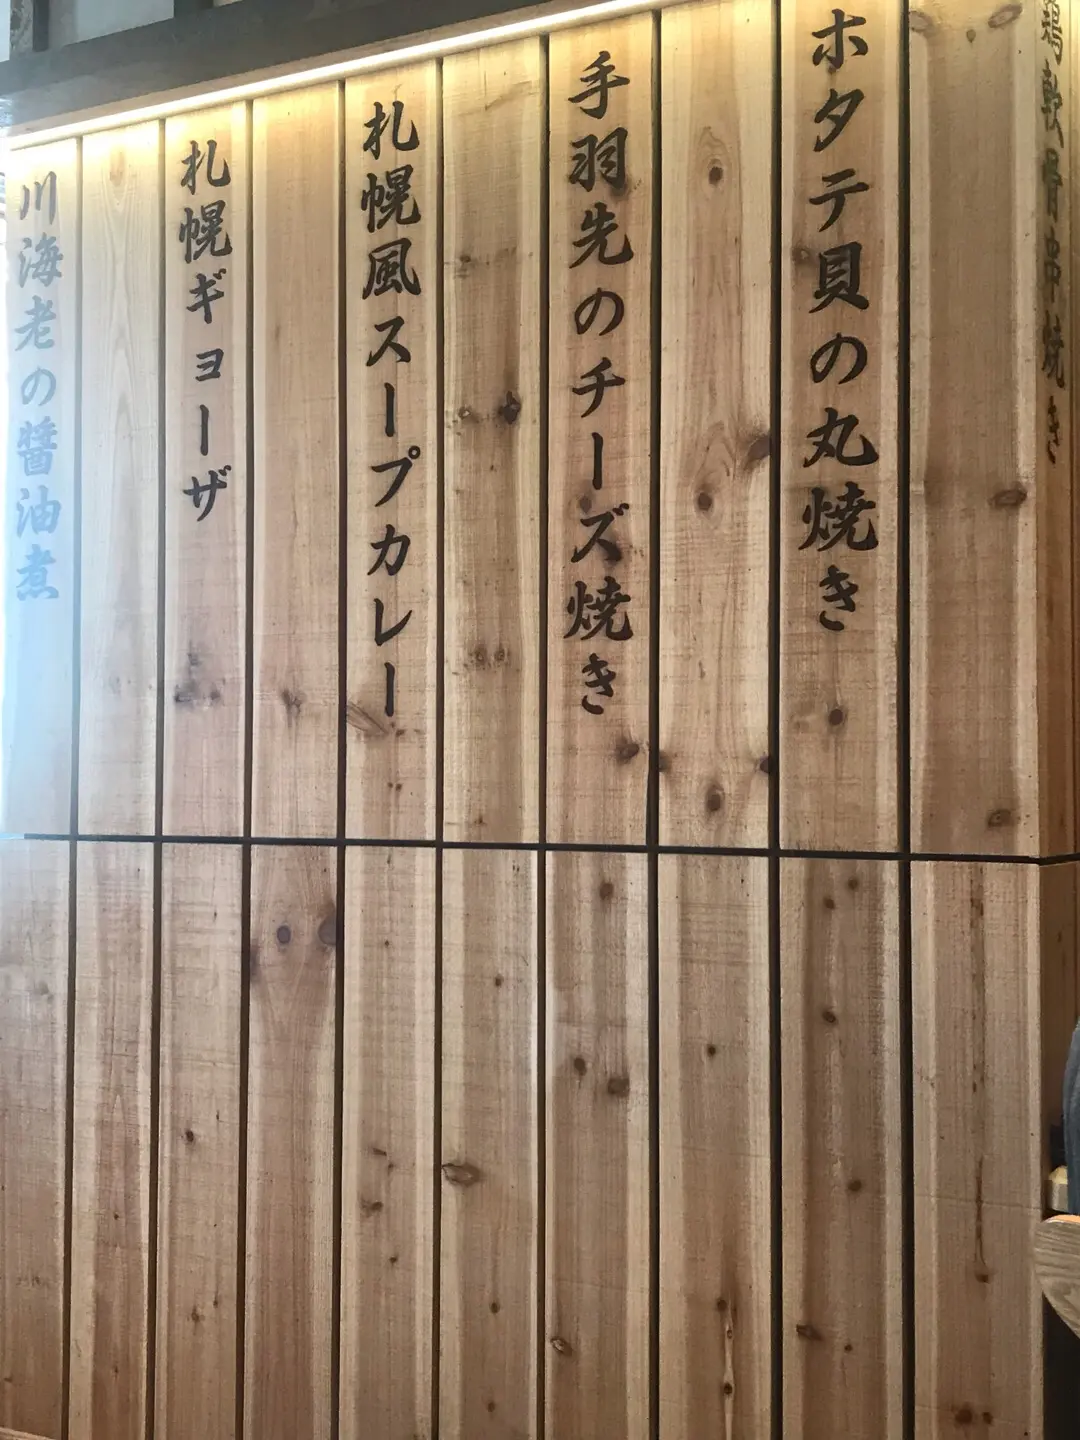 鶏軟骨串焼き
ホタテ貝の丸焼き
手羽先のチーズ焼き
札幌風スープカレー
札幌ギョーザ
川海老の醤油煮